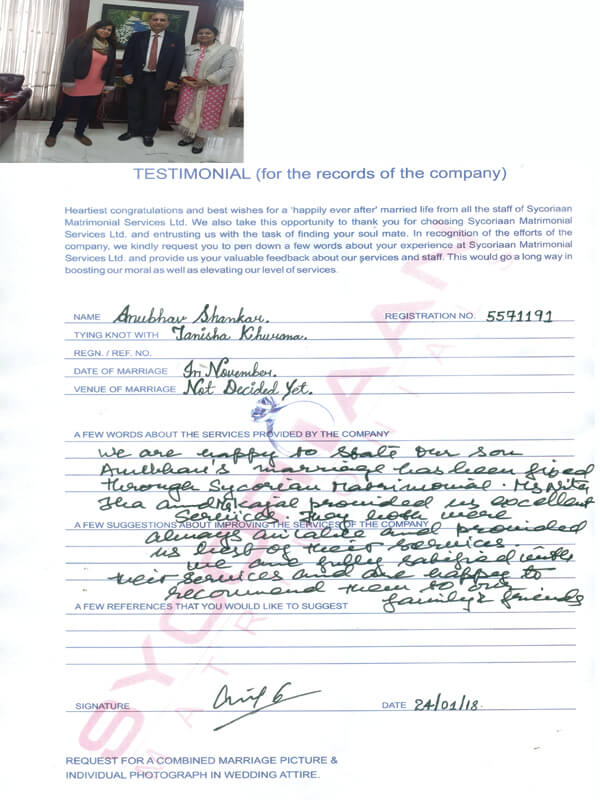 TESTIMONIAL (for the records of the company)
Heartiest congratulations and best wishes for a 'happily ever after' married life from all the staff of Sycoriaan
Matrimonial Services Ltd. We also take this opportunity to thank you for choosing Sycoriaan Matrimonial
Services Ltd. and entrusting us with the task of finding your soul mate. In recognition of the efforts of the
company, we kindly request you to pen down a few words about your experience at Sycoriaan Matrimonial
Services Ltd. and provide us your valuable feedback about our services and staff. This would go a long way in
boosting our moral as well as elevating our level of services.
NAME Anubhav Shankar. REGISTRATION NO. 5571191
TYING KNOT WITH Tanisha Khurana.
REGN. / REF. NO.
DATE OF MARRIAGE In November.
VENUE OF MARRIAGE Not Decided Yet.
A FEW WORDS ABOUT THE SERVICES PROVIDED BY THE COMPANY
We are happy to state our son
Anubhav's marriage has been fixed
through Sycorian Matrimonial. Ms
Jha and Ms Kajal provided us excellent
Service. They both were
A FEW SUGGESTIONS ABOUT IMPROVING THE SERVICES OF THE COMPANY
always and provided
us best of their services.
We are fully satisfied with
their services and are happy to
recommend them to our
family & friends
A FEW REFERENCES THAT YOU WOULD LIKE TO SUGGEST
SIGNATURE DATE 24/01/18.
REQUEST FOR A COMBINED MARRIAGE PICTURE &
INDIVIDUAL PHOTOGRAPH IN WEDDING ATTIRE.
SYCORIAAN
MATRIMONIAL